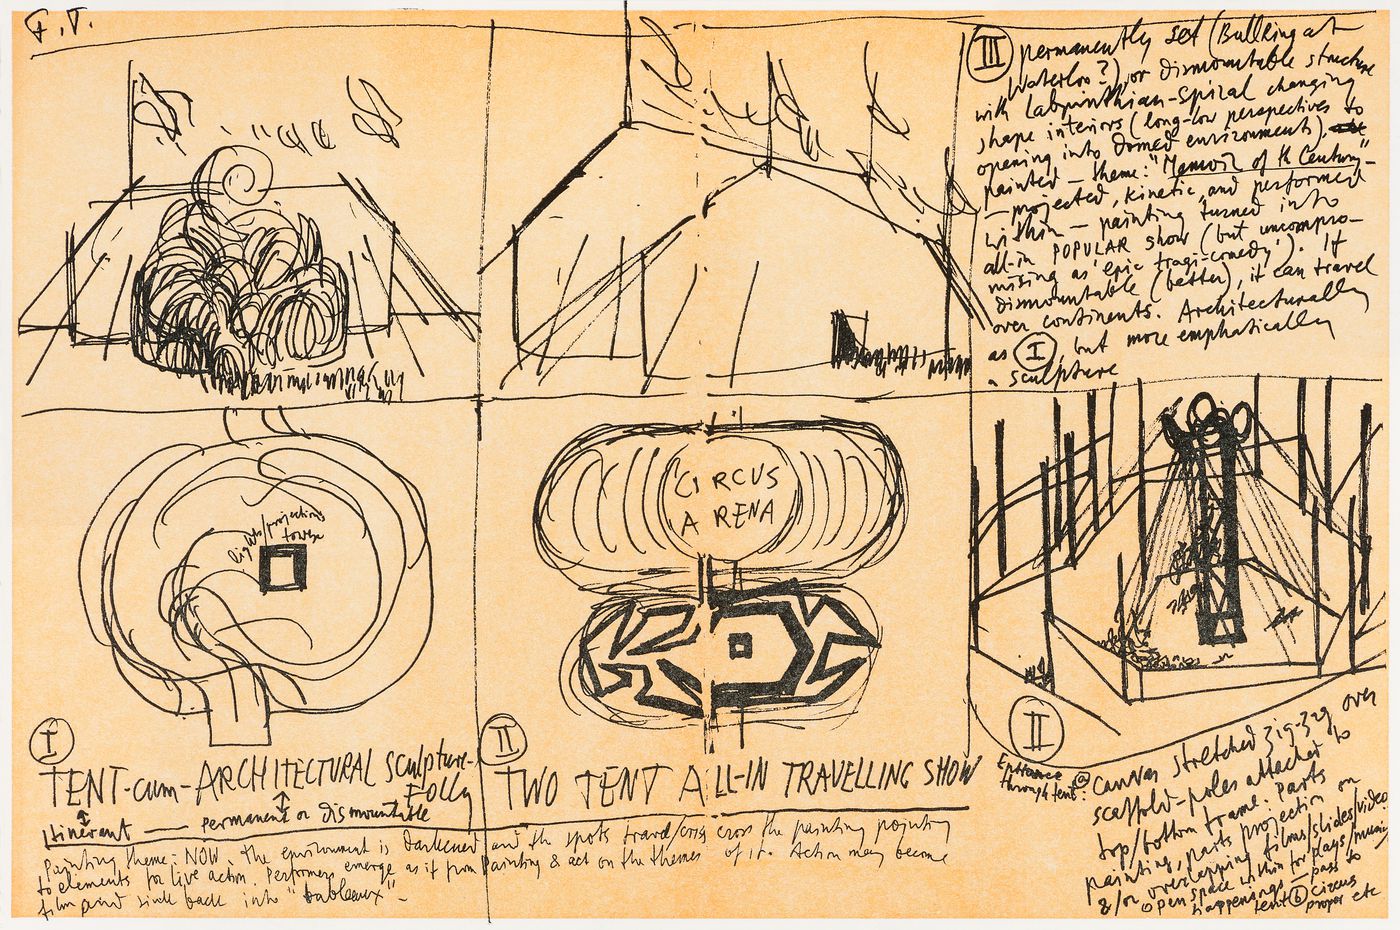 F.T.
III permanently set (Bullring at
Waterloo?), or dismountable structure
with labyrinthian-spiral changing
shape interiors (long-low perspectives to
opening into domed environments).
painted — theme: "Memoir of th Century" —
— projected, kinetic, and performed
within — painting turned into
all-in POPULAR show (but uncompro-
mising as 'epic tragi-comedy'). If
dismountable (better), it can travel
over continents. Architecturally
as I, but more emphatically
a sculpture
lights/projections
tower
CIRCUS
ARENA
I
TENT-cum-ARCHITECTURAL Sculpture-
Folly
Itinerant — permanent or dismountable
II
TWO TENT ALL-IN TRAVELLING SHOW
Painting theme: NOW. The environment is Darkened and the spots travel/criss cross the painting pointing
to elements for live action. Performers emerge as if from Painting & act on the themes of it. Action may become
film and sink back into "tableaux" —
II
Entrance
through tent
a Canvas stretched zig-zag over
scaffold-poles attached to
top/bottom frame: parts
painting, parts projection on
&/or overlapping films/slides/video
open space within for plays/music/
happenings — pass to
tent b circus
proper etc